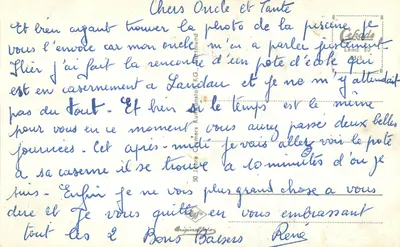 Chers Oncle et Tante
Et bien ayant trouver la photo de la piscine je
vous l'envoie car mon oncle m'en a parler justement
Hier j'ai fait la rencontre d'un pote d'école qui
est en casernement a Landau et je ne m'y attendait
pas du tout - Et bien si le temps est le même
pour vous en ce moment vous aurez passé deux belles
journées - Cet après-midi je vais allez voir le pote
a sa caserne il se trouve a 10 minutes d'ou je
suis - Enfin je ne vois plus grand chose a vous
dire et je vous quitte en vous embrassant
tout les 2 Bons Baisers René